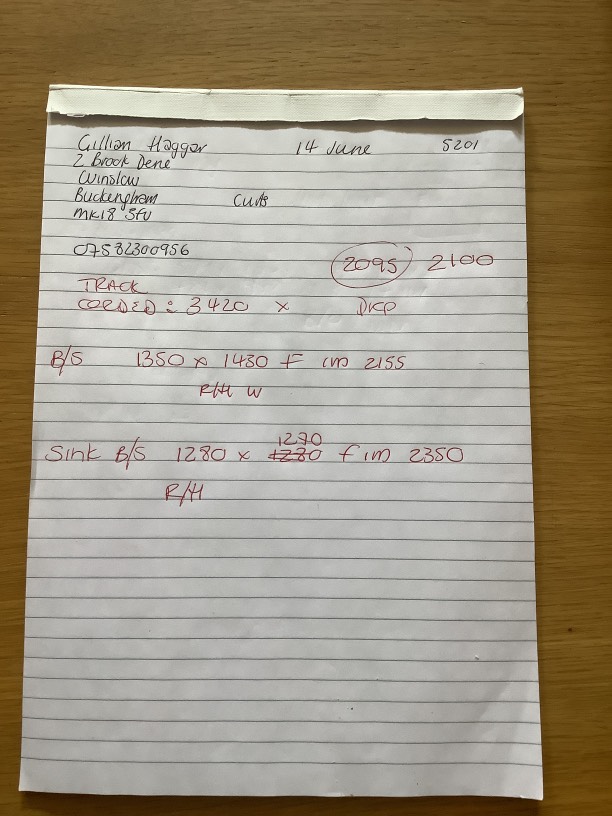 Gillian Haggar 14 June 5201
2 Brook Dene
Winslow
Buckengham Cuts
MK18 3FU
07582300956
2095 2100
TRACK
CORDED : 3420 x DKP
B/S 1350 x 1430 F im 2155
R/H W
1270
Sink B/S 1280 x 1280 f im 2350
R/H